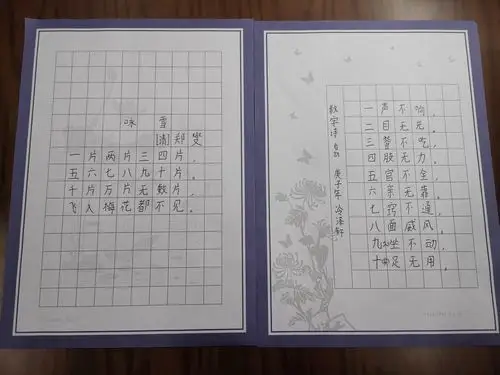 咏 雪
[清] 郑燮
一片两片三四片，
五六七八九十片。
千片万片无数片，
飞入梅花都不见。
数字诗
庚子年
一声不响，
二目无光。
三餐不吃，
四肢无力。
五官不全，
六亲无靠。
七窍不通，
八面威风。
九坐不动，
十足无用。